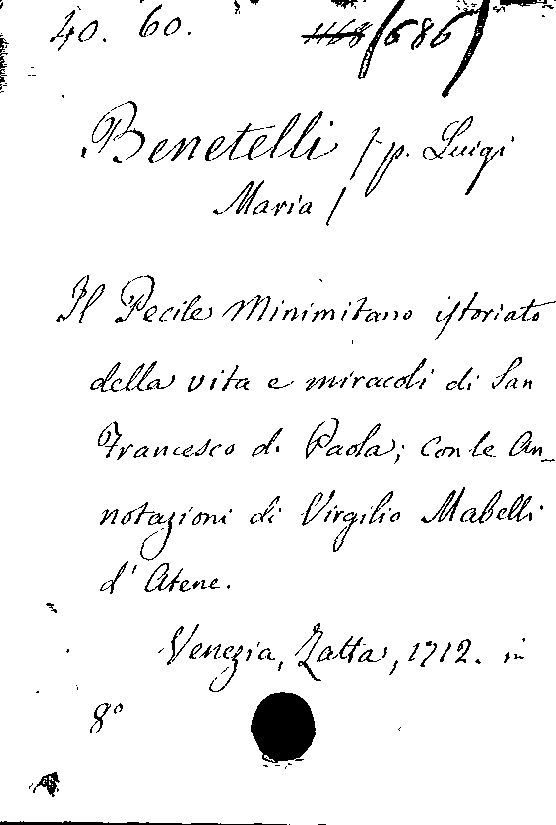 40. 60. 1168 (686)
Benetelli / p. Luigi
Maria /
Il Pecile Minimitano istoriato
della vita e miracoli di San
Francesco di Paola; con le An_
notazioni di Virgilio Mabelli
d' Atene.
Venezia, Zatta, 1712. in
8°